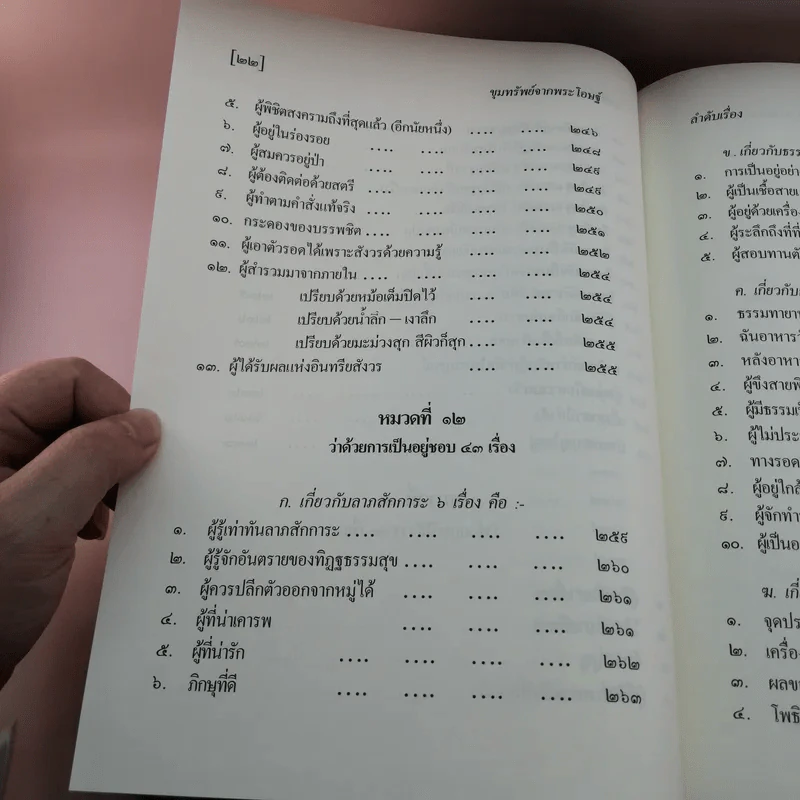 [๒๒]
ขุมทรัพย์จากพระโอษฐ์
๕. ผู้พิชิตสงครามถึงที่สุดแล้ว (อีกนัยหนึ่ง) .... .... ๒๔๖
๖. ผู้อยู่ในร่องรอย .... .... .... ๒๔๘
๗. ผู้สมควรอยู่ป่า .... .... .... ๒๔๙
๘. ผู้ต้องติดต่อด้วยสตรี .... .... .... ๒๔๙
๙. ผู้ทำตามคำสั่งแท้จริง .... .... .... ๒๕๐
๑๐. กระดองของบรรพชิต .... .... .... ๒๕๑
๑๑. ผู้เอาตัวรอดได้เพราะสังวรด้วยความรู้ .... .... ๒๕๒
๑๒. ผู้สำรวมมาจากภายใน .... .... .... .... ๒๕๔
เปรียบด้วยหม้อเต็มปิดไว้ .... .... ๒๕๔
เปรียบด้วยน้ำลึก – เงาลึก .... .... ๒๕๔
เปรียบด้วยมะม่วงสุก สีผิวก็สุก .... .... ๒๕๕
๑๓. ผู้ได้รับผลแห่งอินทรียสังวร .... .... ๒๕๕
หมวดที่ ๑๒
ว่าด้วยการเป็นอยู่ชอบ ๔๓ เรื่อง
ก. เกี่ยวกับลาภสักการะ ๖ เรื่อง คือ :-
๑. ผู้รู้เท่าทันลาภสักการะ .... .... .... .... ๒๕๙
๒. ผู้รู้จักอันตรายของทิฏฐธรรมสุข .... .... .... ๒๖๐
๓. ผู้ควรปลีกตัวออกจากหมู่ได้ .... .... .... ๒๖๑
๔. ผู้ที่น่าเคารพ .... .... .... ๒๖๑
๕. ผู้ที่น่ารัก .... .... .... .... ๒๖๒
๖. ภิกษุที่ดี .... .... .... .... ๒๖๓
ลำดับเรื่อง
ข. เกี่ยวกับธรร
๑. การเป็นอยู่อย่า
๒. ผู้เป็นเชื้อสาย
๓. ผู้อยู่ด้วยเครื่อง
๔. ผู้ระลึกถึงที่
๕. ผู้สอบทานตั
ค. เกี่ยวกับ
๑. ธรรมทายา
๒. ฉันอาหารวั
๓. หลังอาหาร
๔. ผู้ขึงสายพิ
๕. ผู้มีธรรมเ
๖. ผู้ไม่ประ
๗. ทางรอด
๘. ผู้อยู่ใกล้
๙. ผู้จักทำ
๑๐. ผู้เป็นอ
ฆ. เกี่
๑. จุดประ
๒. เครื่อง
๓. ผลข
๔. โพธิ